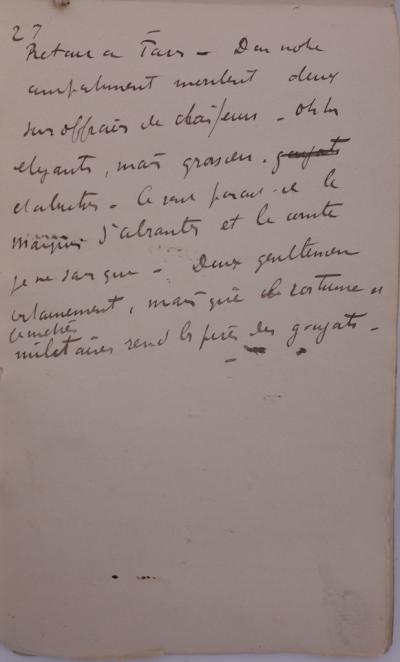 27
Retour à Paris – Dans notre
compartiment montent deux
sous officiers de chasseurs – oh très
élégants, mais grossiers. goujats
et abrutis – Ce sont paraît-il le
marquis d'Abrantès et le comte
je ne sais qui – Deux gentlemen
certainement, mais que le costume et
le métier
militaires rend les pires des goujats –